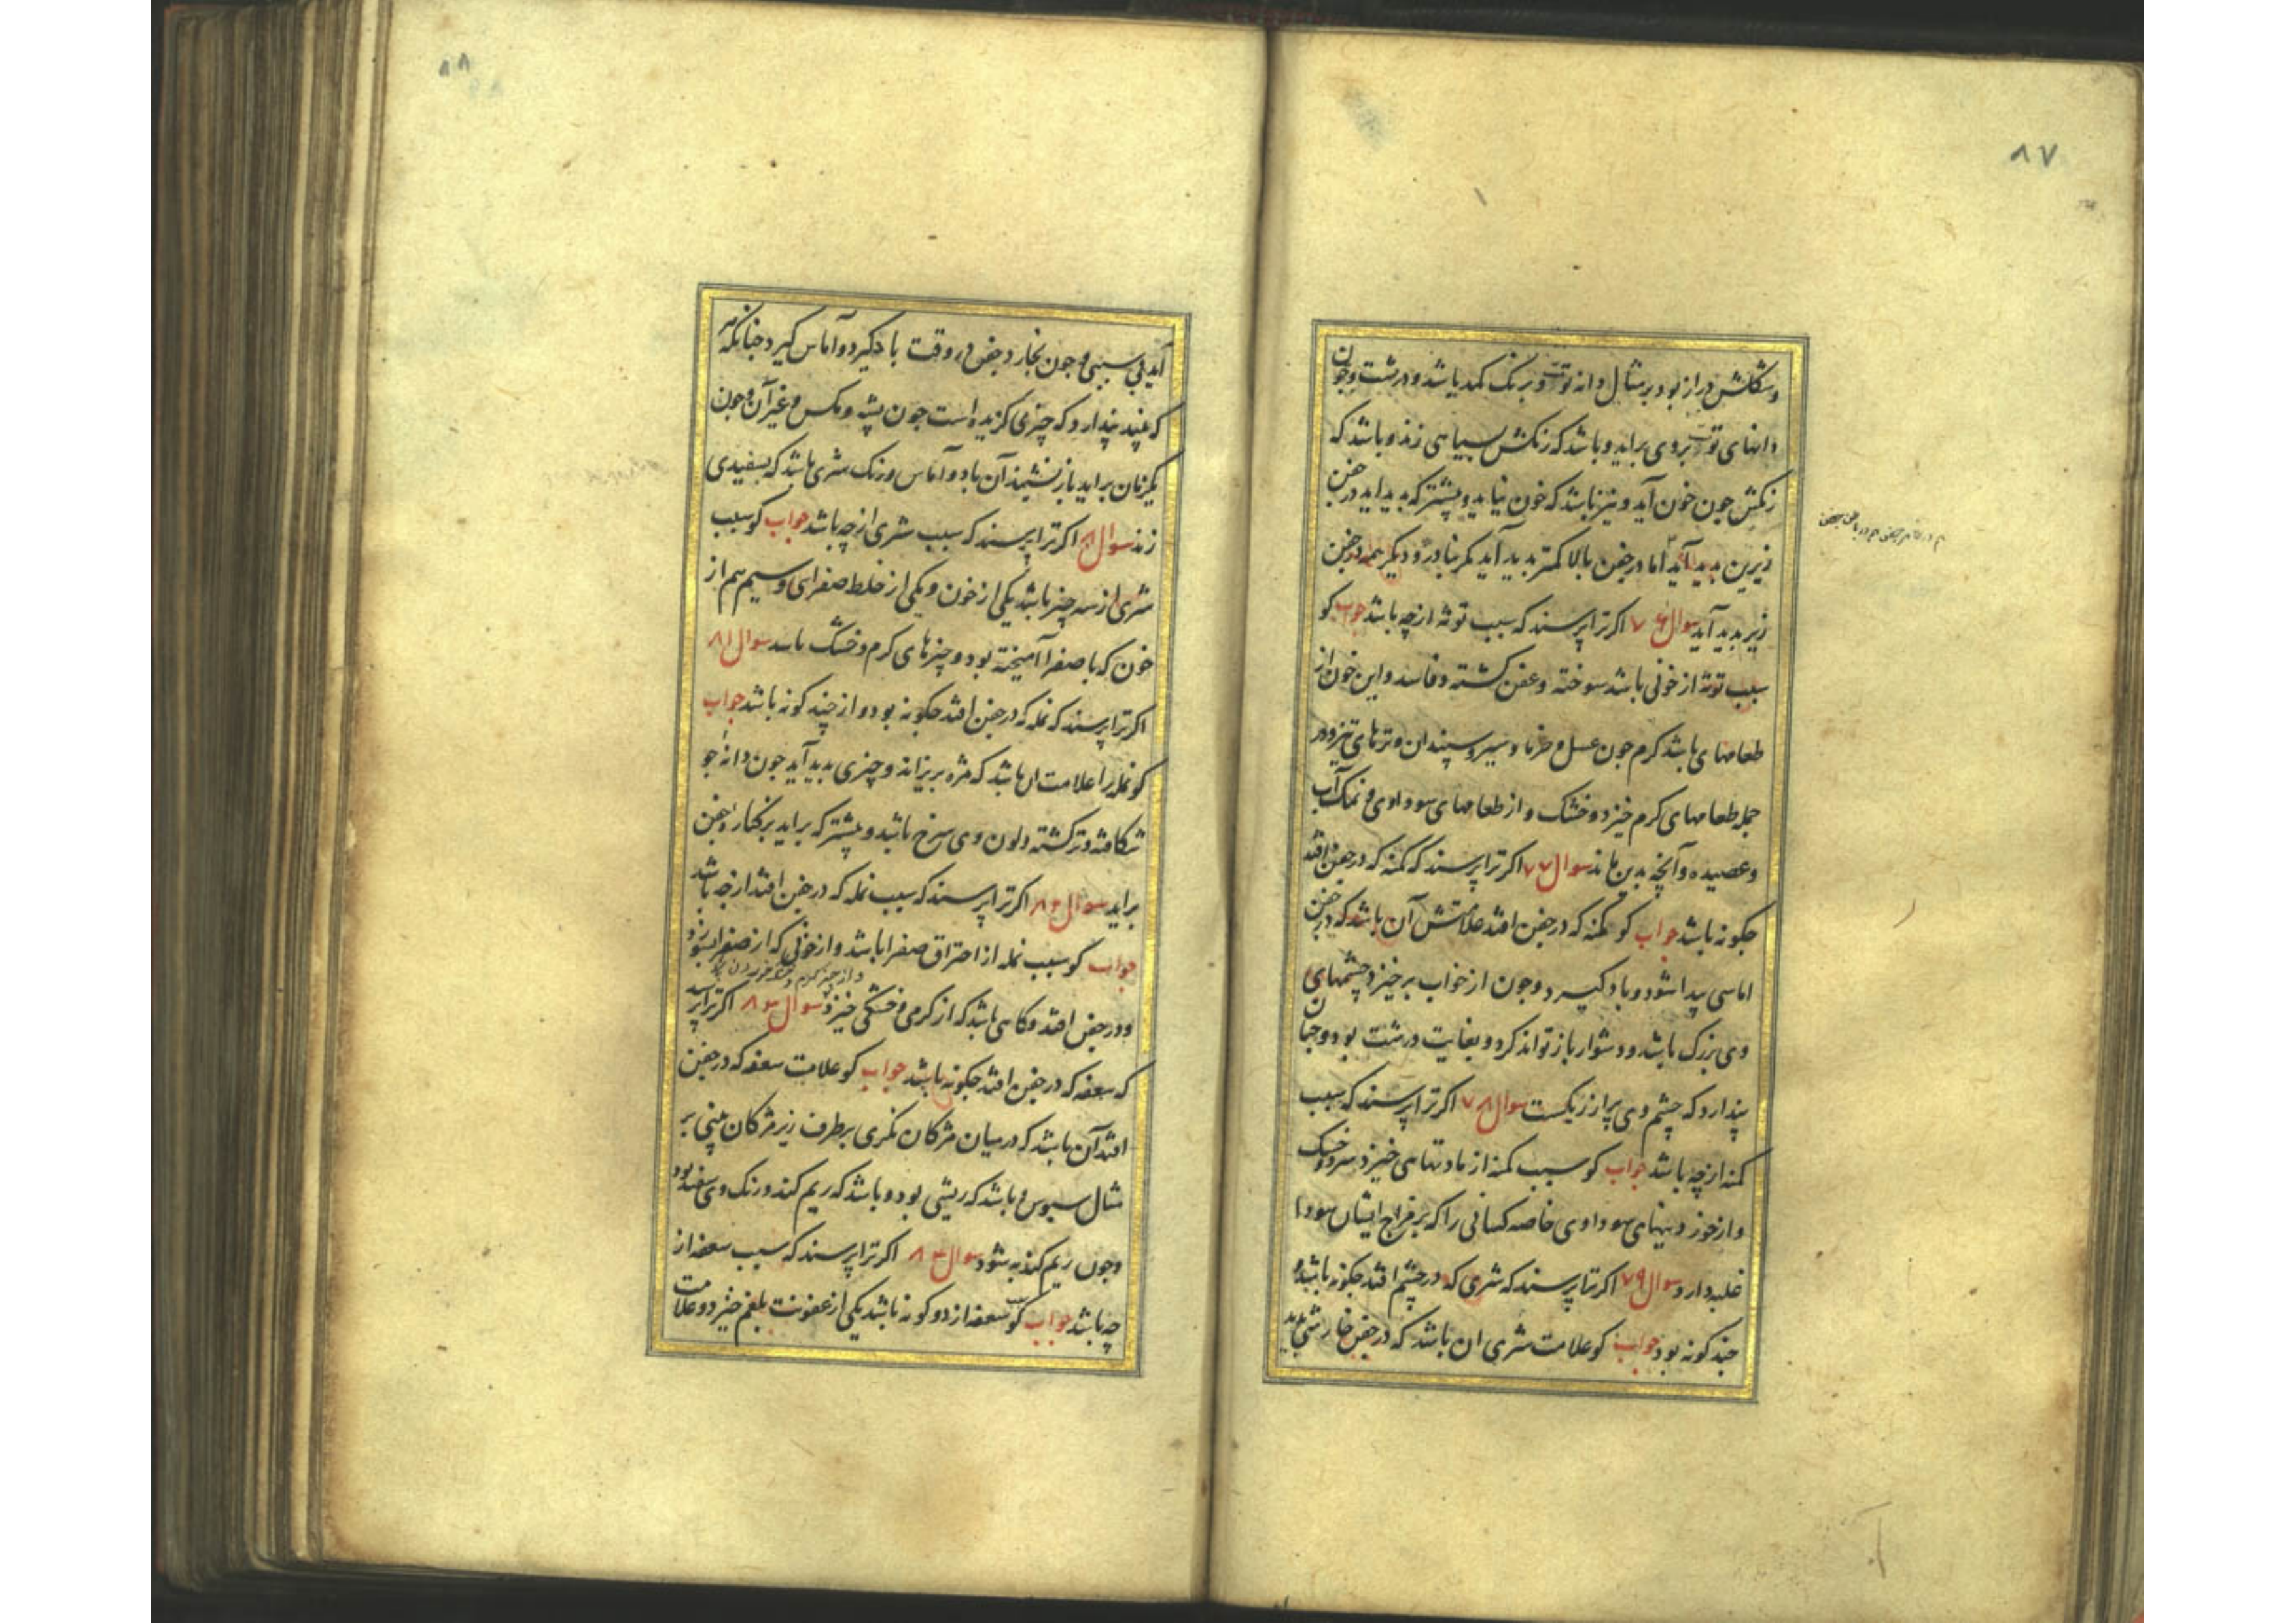 ۸۷
وشکلش دراز بود بر مثال دانه توت و برنک کمد باشد و درشت وجون
دانهای توت بروی براید و باشد که رنکش بسیاهی زند و باشد که
رنکش جون خون آید و نیز باشد که خون نیاید و بیشتر که بدید اید در جفن
زیرین بدید آید اما در جفن بالا کمتر بدید آید مکر بنادر و دیکر همه در جفن
زیر بدید آید سوال ۷۶ اکر ترا پرسند که سبب توثه از چه باشد جواب کو
سبب توثه از خونی باشد سوخته و عفن کشته و فاسد و این خون از
طعامهای باشد کرم جون عسل و خرما و سیر و سپندان و ترهای تیز و در
جمله طعامهای کرم خیزد و خشک و از طعامهای سوداوی و نمک آب
وعصیده و آنچه بدین ماند سوال ۷۷ اکر ترا پرسند که کمنه که در جفن افتد
جکونه باشد جواب کو کمنه که در جفن افتد علامتش آن باشد که در جفن
اماسی پیدا شود و باد کیرد و جون از خواب برخیزد چشمهای
وی بزرک باشد و دشوار باز تواند کرد و بغایت درشت بود و جنان
پندارد که چشم وی پر از ریکست سوال ۷۸ اکر ترا پرسند که سبب
کمنه از چه باشد جواب کو سبب کمنه از مادتهایی خیزد سرد و خشک
و از خوردنیهای سوداوی خاصه کسانی را که بر مزاج ایشان سودا
غلبه دارد سوال ۷۹ اکر ترا پرسند که شری که در چشم افتد جکونه باشد و
جند کونه بود جواب کو علامت شری ان باشد که در جفن خارشی بدید
۸۸
آید بی سببی و جون بخارد جفن در وقت باد کیرد و آماس کیرد جنانکه
که بیند پندارد که چیزی کزیده است جون پشه و مکس و غیر آن و جون
یکزمان براید باز نشیند آن باد و آماس و رنک شری باشد که بسفیدی
زند سوال اکر ترا پرسند که سبب شری از چه باشد جواب کو سبب
شری از سه چیز باشد یکی از خون و یکی از خلط صفرای و سیم هم از
خون که با صفرا آمیخته بود و چیزهای کرم و خشک باشد سوال ۸۱
اکر ترا پرسند که نمله که در جفن افتد جکونه بود و از چند کونه باشد جواب
کو نمله را علامت ان باشد که مژه بریزاند و چیزی بدید آید جون دانه جو
شکافته و ترکشته و لون وی سرخ باشد و بیشتر که براید بر کنار جفن
براید سوال ۸۲ اکر ترا پرسند که سبب نمله که در جفن افتد از چه باشد
جواب کو سبب نمله از احتراق صفرا باشد و از خونی که از صفرا بسوزد
و از چیز کرم و خشک خوردن
و در جفن افتد و کاهی باشد که از کرمی و خشکی خیزد سوال ۸۳ اکر ترا پرسند
که سعفه که در جفن افتد جکونه باشد جواب کو علامت سعفه که در جفن
افتد آن باشد که در میان مژکان نکری بر طرف زیر مژکان بینی بر
مثال سبوس و باشد که ریشی بود و باشد که ریم کند و رنک وی سفید بود
وجون ریم کند به شود سوال ۸۴ اکر ترا پرسند که سبب سعفه از
چه باشد جواب کو سبب سعفه از دو کونه باشد یکی از عفونت بلغم خیزد و علامت